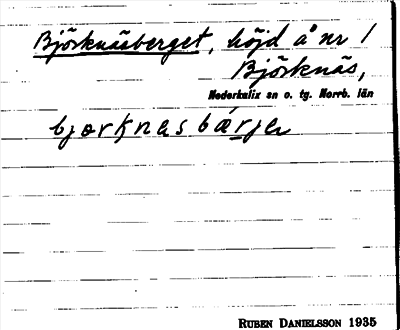 Björknäsberget, höjd å nr 1
Björknäs,
Nederkalix sn o. tg. Norrb. län
bjørknes bærjen
RUBEN DANIELSSON 1935